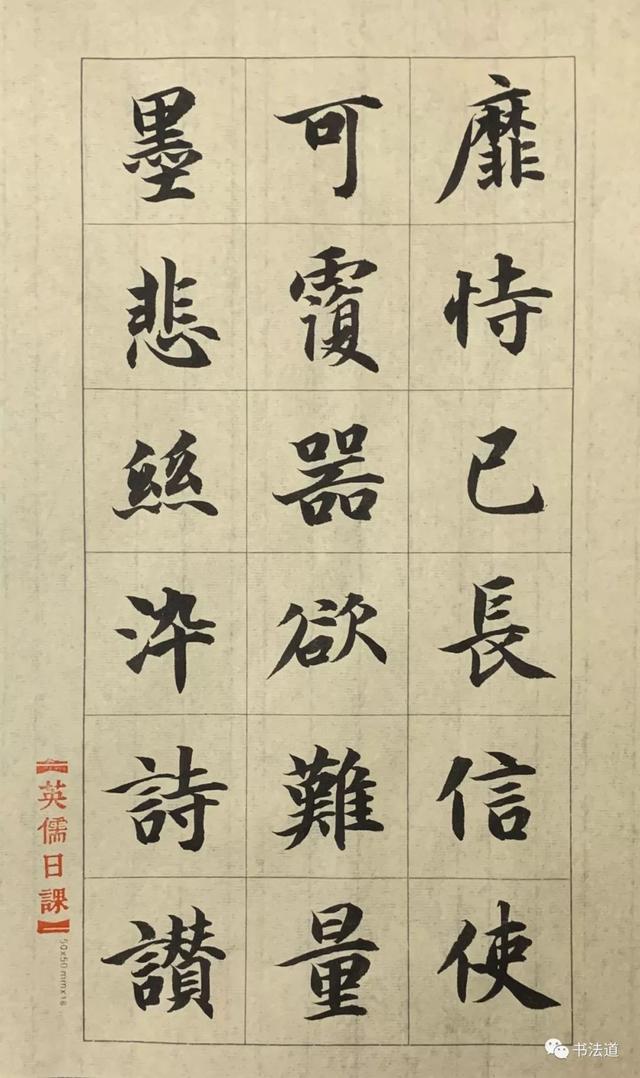 靡恃已長信使
可覆器欲難量
墨悲絲淬詩讃
英儒日課
50x50mmx18
书法道